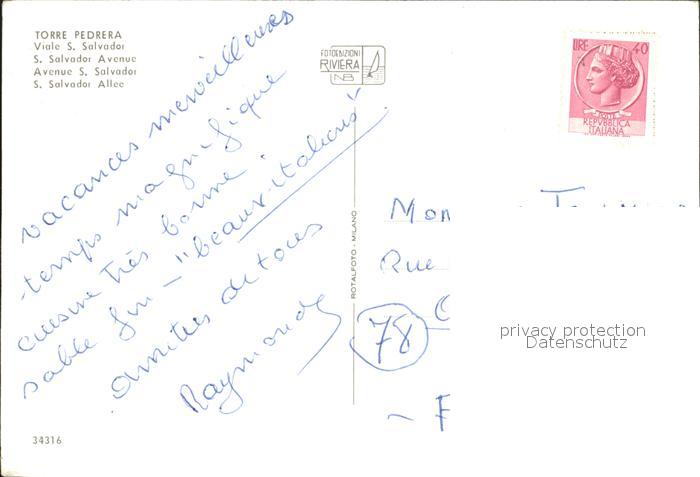 TORRE PEDRERA
Viale S. Salvador
S. Salvador Avenue
Avenue S. Salvador
S. Salvador Allee
FOTOEDIZIONI
RIVIERA
NB
LIRE 40
POSTE
REPVBBLICA
ITALIANA
vacances merveilleuses
temps magnifique
cuisine très bonne
sable fin - "beaux italiens"
amitiés de tous
Raymonde
ROTALFOTO - MILANO
Mon
Rue
78
privacy protection
Datenschutz
34316